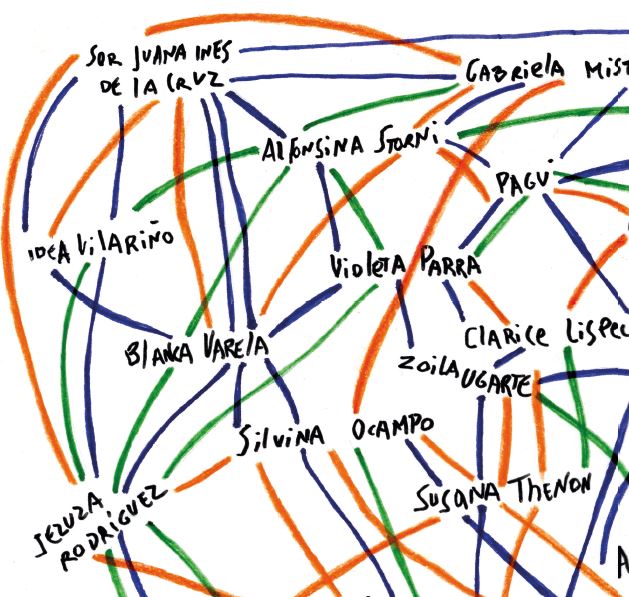 SOR JUANA INES
DE LA CRUZ
GABRIELA MIST
ALFONSINA STORNI
PAGÚ
IDEA VILARIÑO
VIOLETA PARRA
CLARICE LISPEC
BLANCA VARELA
ZOILA UGARTE
SILVINA OCAMPO
SUSANA THENON
JEZUZA
RODRÍGUEZ
A